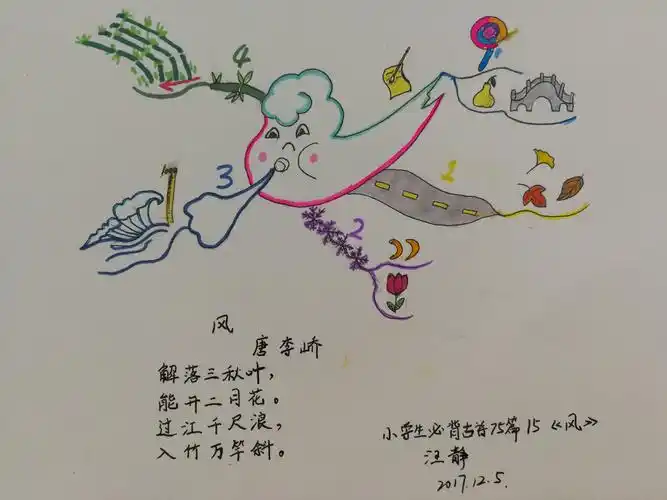 4
1
3
2
风
唐 李峤
解落三秋叶，
能开二月花。
过江千尺浪，
入竹万竿斜。
小学生必背古诗75篇 15《风》
汪静
2017.12.5.